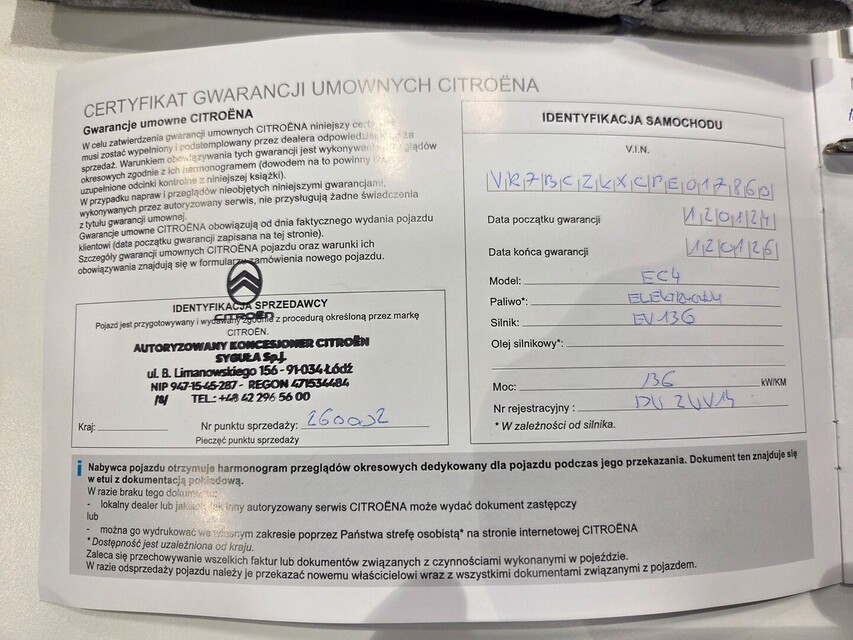 CERTYFIKAT GWARANCJI UMOWNYCH CITROËNA
Gwarancje umowne CITROËNA
W celu zatwierdzenia gwarancji umownych CITROËNA niniejszy
musi zostać wypełniony i podstemplowany przez dealera
sprzedaż. Warunkiem obowiązywania tych gwarancji jest
okresowych zgodnie z ich harmonogramem (dowodem na to powinny
uzupełnione odcinki kontrolne z niniejszej książki).
W przypadku napraw i przeglądów nieobjętych niniejszymi gwarancjami,
wykonywanych przez autoryzowany serwis, nie przysługują żadne świadczenia
z tytułu gwarancji umownej.
Gwarancje umowne CITROËNA obowiązują od dnia faktycznego wydania pojazdu
klientowi (data początku gwarancji zapisana na tej stronie).
Szczegóły gwarancji umownych CITROËNA pojazdu oraz warunki ich
obowiązywania znajdują się w formularzu zamówienia nowego pojazdu.
IDENTYFIKACJA SPRZEDAWCY
CITROËN
Pojazd jest przygotowywany i wydawany zgodnie z procedurą określoną przez markę
CITROËN.
AUTORYZOWANY KONCESJONER CITROËN
SYGUŁA Sp.j.
ul. B. Limanowskiego 156 - 91-034 Łódź
NIP 947-15-45-287 - REGON 471534484
TEL.: +48 42 296 56 00
Kraj: Nr punktu sprzedaży: 260002
Pieczęć punktu sprzedaży
IDENTYFIKACJA SAMOCHODU
V.I.N.
VR7BCZKXCPE017860
Data początku gwarancji 120124
Data końca gwarancji 120126
Model: EC4
Paliwo*: ELEKTRYCZNY
Silnik: EV136
Olej silnikowy*:
Moc: 136 kW/KM
Nr rejestracyjny :
* W zależności od silnika.
i Nabywca pojazdu otrzymuje harmonogram przeglądów okresowych dedykowany dla pojazdu podczas jego przekazania. Dokument ten znajduje się
w etui z dokumentacją pokładową.
W razie braku tego dokumentu:
- lokalny dealer lub jakikolwiek inny autoryzowany serwis CITROËNA może wydać dokument zastępczy
lub
- można go wydrukować we własnym zakresie poprzez Państwa strefę osobistą* na stronie internetowej CITROËNA
* Dostępność jest uzależniona od kraju.
Zaleca się przechowywanie wszelkich faktur lub dokumentów związanych z czynnościami wykonanymi w pojeździe.
W razie odsprzedaży pojazdu należy je przekazać nowemu właścicielowi wraz z wszystkimi dokumentami związanymi z pojazdem.